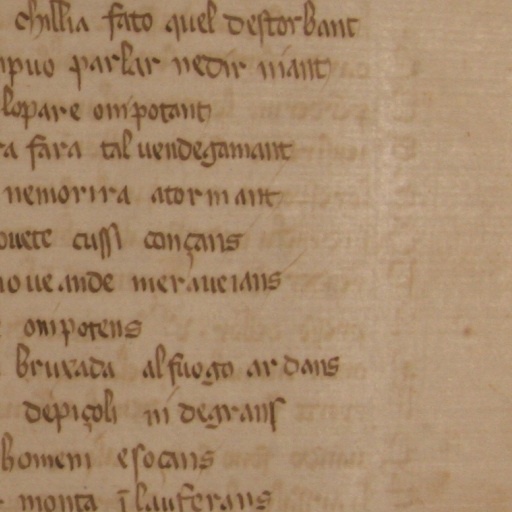 chillia fato quel destorbant
puo parlar nedir niant
lopare onipotant
ra fara tal uendegamant
nemorira atormant
ouete cussi conçans
noue ande meraueians
onipotens
bruxada al fuogo ardans
depiçoli ni degrans
bomeni esocans
monta ī lauferans